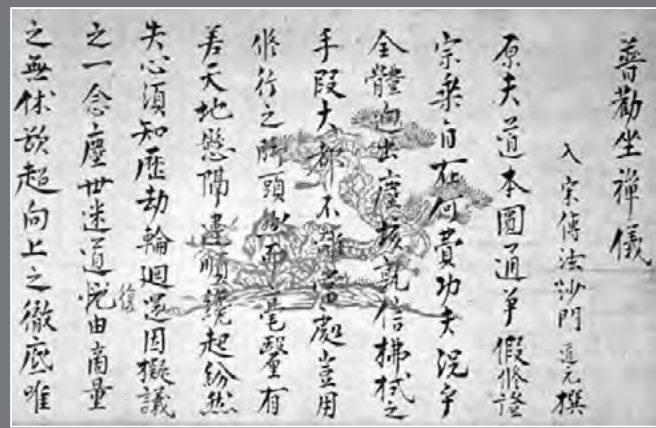 普勸坐禪儀
入宋傳法沙門道元撰
原夫道本圓通爭假修證
宗乘自在何費功夫況乎
全體迥出塵埃孰信拂拭之
手段大都不離當處豈用
修行之脚頭然而毫釐有
差天地懸隔違順纔起紛然
失心須知歷劫輪迴還因擬議
之一念塵世迷道復由商量
之無休欲超向上之徹底唯